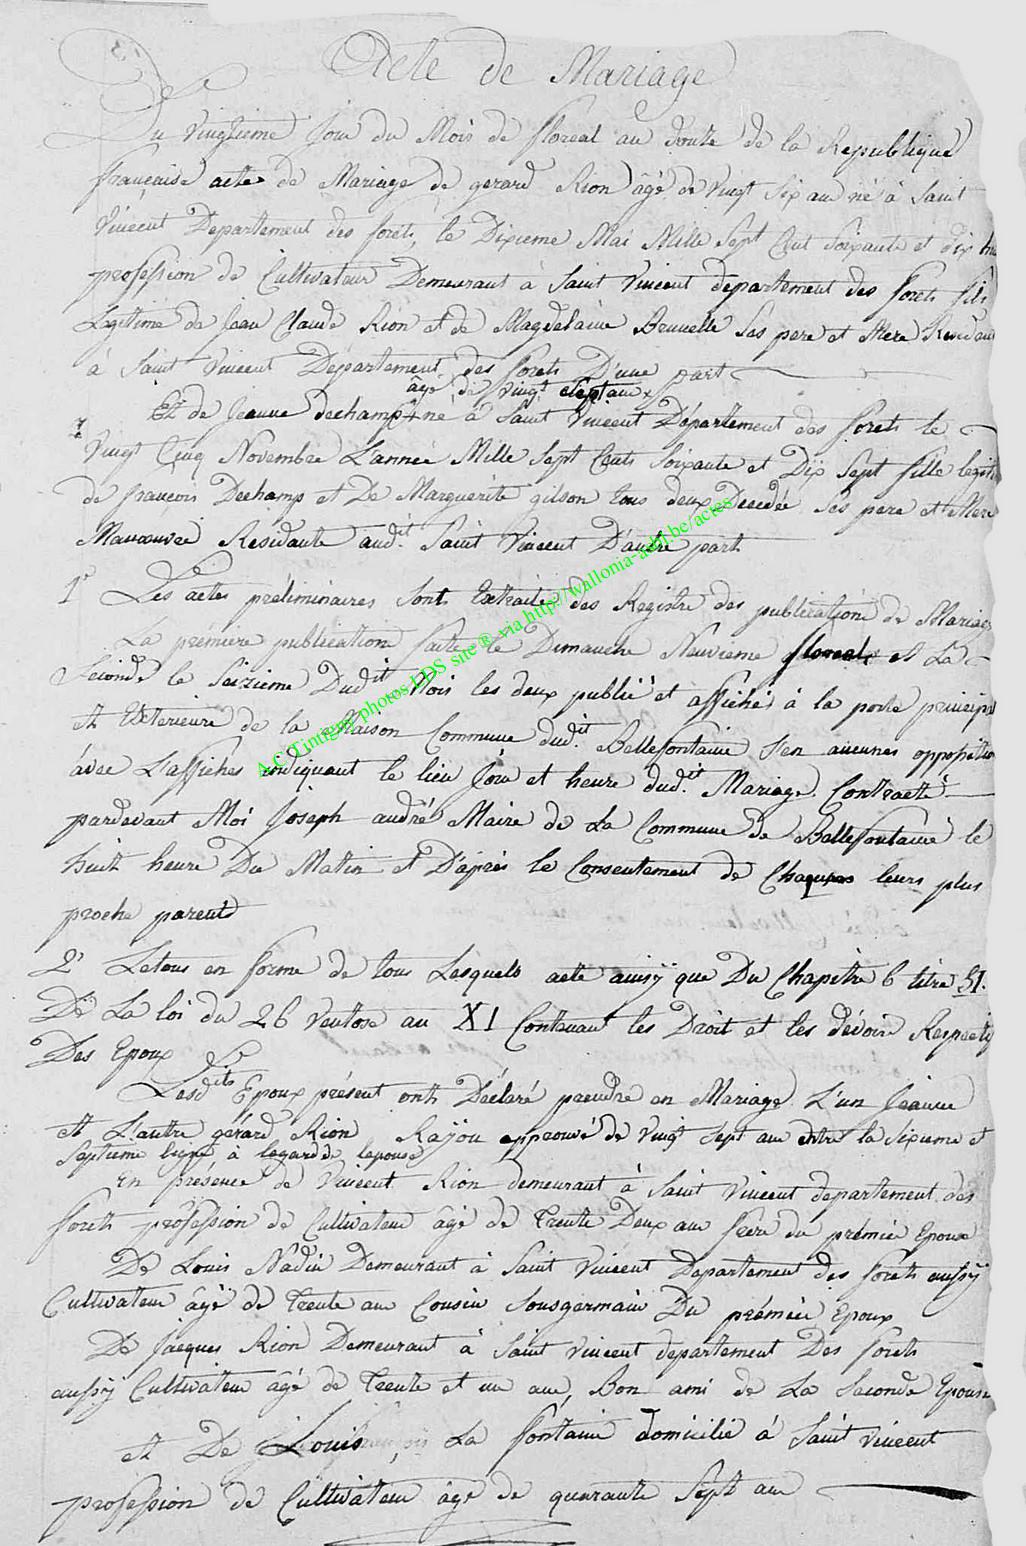 Acte de Mariage
Du vingtieme Jour du Mois de floreal an douze de la Republique
française acte de Mariage de gerard Rion âgé de vingt six an né à Saint
Vincent Departement des forets, le Dixieme Mai Mille Sept Cent Soixante et dix hu
profession de Cultivateur Demeurant à Saint Vincent departement des forets fils
Legitime de Jean Claude Rion et de Magdelaine Bruvelle Ses pere et Mere Residant
à Saint Vincent Departement des forets D'une part
âgé de vingt Sept an
Et de Jeanne dechamps née à Saint Vincent Département des forets le
Vingt Cinq Novembre L'année Mille Sept Cents Soixante et Dix Sept fille legit
de francois Dechamp et De Marguerite gilson tous deux Decedée Ses pere et Mere
Manœuvre Residante audit. Saint Vincent D'autre part
1° Les actes preliminaires Sont Extraite des Registre des publications de Mariage
La prémiere publication faite le Dimanche Neuvieme floreal et La
Seconde le Seizieme Dudit Mois les deux publié et affiché à la porte principal
et Exterieure de la Maison Commune dudit. Bellefontaine S'en aucunes opposition
avec L'affiches indiquant le lieu Jour et heure dudit. Mariage Contracté
pardevant Moi Joseph andré Maire de La Commune de Bellefontaine le
huit heure Du Matin et D'aprés le Consentement de Chaques leurs plus
proche parents
2° Letous en forme de tous Lesquels acte ainsÿ que Du Chapitre 6 titre 51.
De La loi du 26 Ventose an XI Contenant les Droit et les dévoirs Respectif
Des Epoux
Lesdits Epoux présent onts Déclaré prendre en Mariage L'un Jeanne
et L'autre gérard Rion Rayou approuvé de vingt sept an entre la Sixieme et
Septieme ligne à legard de lepouse
En présence de Vincent Rion demeurant à Saint Vincent departement des
forets profession de Cultivateur âgé de Trente Deux an frere du prémier Epoux
De Louis Nadin Demeurant à Saint Vincent Departement des forets aussÿ
Cultivateur âgé de Trente an Cousin Sousgermain Du prémier Epoux
De Jacques Rion Demeurant à Saint Vincent departement Des forets
aussÿ Cultivateur âgé de Trente et un an, Bon ami de La Seconde Epouse
et De Louis La fontaine domicilié à Saint Vincent
profession de Cultivateur âgé de quarante Sept an
A.C. Tintigny photos LDS site ® via http://wallonia-asbl.be/actes